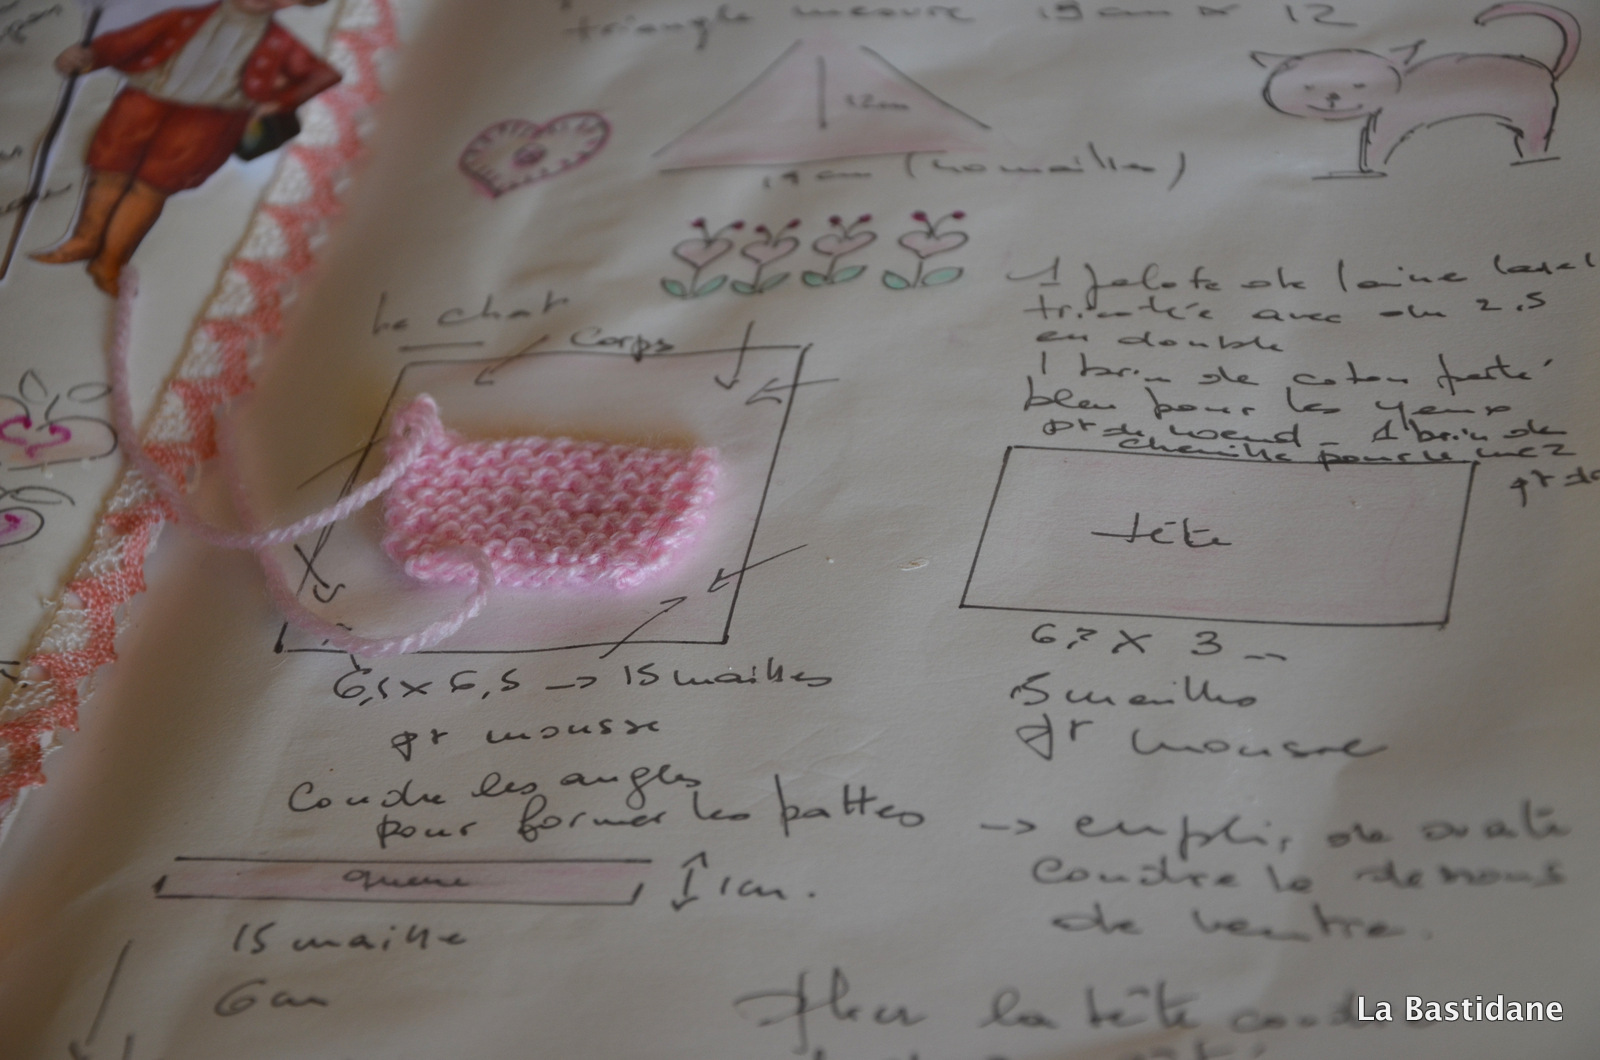 triangle mesure 19 cm x 12
12cm
19 cm (40 mailles)
Le chat
Corps
1 pelote de laine layette
tricotée avec du 2,5
en double
1 brin de coton perlé
bleu pour les yeux
pt de noeud - 1 brin de
chenille pour le nez
pt de
tête
6,5 x 6,5 -> 15 mailles
pt mousse
x 3
15 mailles
pt mousse
Coudre les angles
pour former les pattes
-> emplir de ouate
coudre le dessous
de ventre.
queue
1 cm.
15 maille
6 cm
la tête
La Bastidane